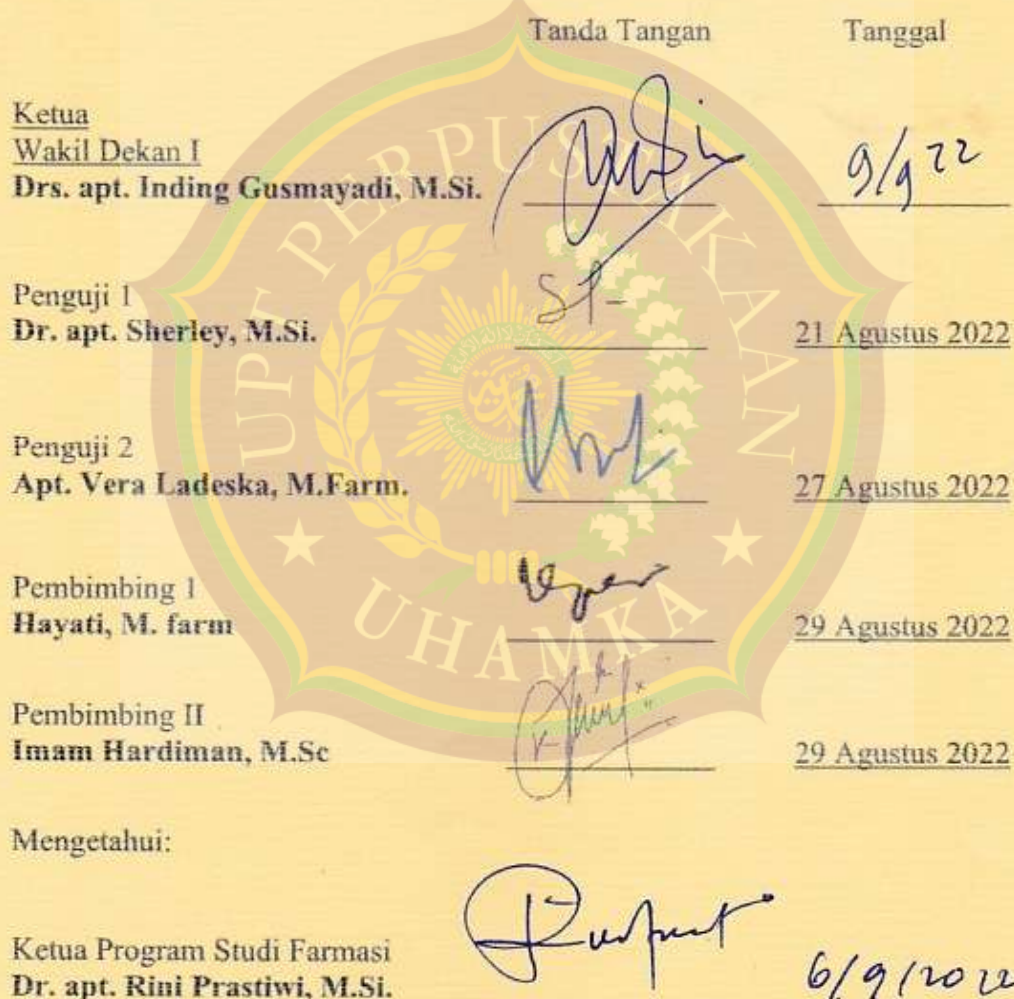 Tanda Tangan Tanggal
Ketua
Wakil Dekan I
Drs. apt. Inding Gusmayadi, M.Si.
9/9 22
Penguji 1
Dr. apt. Sherley, M.Si.
21 Agustus 2022
Penguji 2
Apt. Vera Ladeska, M.Farm.
27 Agustus 2022
Pembimbing 1
Hayati, M. farm
29 Agustus 2022
Pembimbing II
Imam Hardiman, M.Sc
29 Agustus 2022
Mengetahui:
Ketua Program Studi Farmasi
Dr. apt. Rini Prastiwi, M.Si.
6/9/2022
UPT PERPUSTAKAAN
UHAMKA